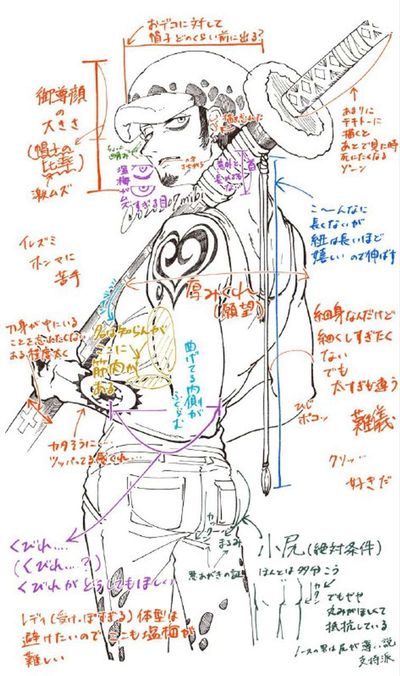 おデコに対して
帽子どのくらい前に出る?
御尊顔
の
大きさ
(帽士の
比率)
激ムズ
塩梅
が
あまりに
テキトーに
描くと
あとで見た時
死にたくなる
ゾーン
こ〜んなに
長くないが
紐は長いほど
嬉しいので伸ばす
イレズミ
ホンマに
苦手
厚みくれ
(願望)
刀身が中にいる
ことを忘れたくない
ある程度太く
知らんが
ここに
筋肉が
ある
曲げてる内側が
ふくらむ
細身なんだけど
細くしすぎたく
ない
でも
太すぎも違う
難儀
ひじ
ボコッ
カタそうに…
ツッパってる感
クリッ…
好きだ
くびれ…
(くびれ…?)
くびれがどうしてもほしい
小尻(絶対条件)
まるみ
悪あがきの証
ほんとは多分こう
でもせや
丸みがほしくて
抵抗している
ノースの男は尻が薄い説
支持派
レディ(受けっぽすぎる)体型は
避けたいのでここも塩梅が
難しい